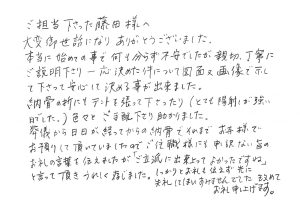 ご担当下さった藤田様へ
大変御世話になり ありがとうございました。
本当に始めての事で何も分らず不安でしたが親切、丁寧に
ご説明下さり一応決めた件について図面又画像で示し
て下さって安心して決める事が出来ました。
納骨の時にもテントを張って下さったり(とても陽射しが強い
日でした。)色々とご手配下さり助かりました。
葬儀から日日が経ってからの納骨でそのままお寺様で
お預りして頂いていましたのでご住職様にも申し訳ない旨の
お礼の言葉を伝えましたが「ご立派に出来上ってよかったですね」
と言って頂き うれしく存じました。しっかりとお礼も伝えず先に
失礼してしまいすみませんでした 改めて
お礼申し上げます。